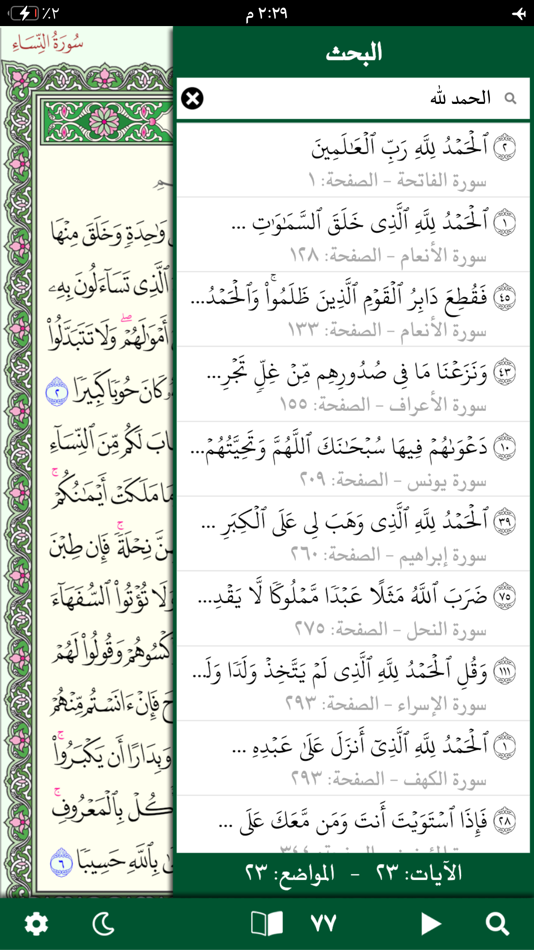 ٪٢
٢:٢٩ م
سُورَةُ النِّسَاءِ
البحث
الحمد لله
ٱلۡحَمۡدُ لِلَّهِ رَبِّ ٱلۡعَٰلَمِينَ ٢
سورة الفاتحة - الصفحة: ١
ٱلۡحَمۡدُ لِلَّهِ ٱلَّذِي خَلَقَ ٱلسَّمَٰوَٰتِ ... ١
سورة الأنعام - الصفحة: ١٢٨
فَقُطِعَ دَابِرُ ٱلۡقَوۡمِ ٱلَّذِينَ ظَلَمُواْۚ وَٱلۡحَمۡدُ... ٤٥
سورة الأنعام - الصفحة: ١٣٣
وَنَزَعۡنَا مَا فِي صُدُورِهِم مِّنۡ غِلّٖ تَجۡرِ... ٤٣
سورة الأعراف - الصفحة: ١٥٥
دَعۡوَىٰهُمۡ فِيهَا سُبۡحَٰنَكَ ٱللَّهُمَّ وَتَحِيَّتُهُمۡ... ١٠
سورة يونس - الصفحة: ٢٠٩
ٱلۡحَمۡدُ لِلَّهِ ٱلَّذِي وَهَبَ لِي عَلَى ٱلۡكِبَرِ ... ٣٩
سورة إبراهيم - الصفحة: ٢٦٠
ضَرَبَ ٱللَّهُ مَثَلًا عَبۡدٗا مَّمۡلُوكٗا لَّا يَقۡدِ... ٧٥
سورة النحل - الصفحة: ٢٧٥
وَقُلِ ٱلۡحَمۡدُ لِلَّهِ ٱلَّذِي لَمۡ يَتَّخِذۡ وَلَدٗا وَلَ... ١١١
سورة الإسراء - الصفحة: ٢٩٣
ٱلۡحَمۡدُ لِلَّهِ ٱلَّذِيٓ أَنزَلَ عَلَىٰ عَبۡدِهِ ... ١
سورة الكهف - الصفحة: ٢٩٣
فَإِذَا ٱسۡتَوَيۡتَ أَنتَ وَمَن مَّعَكَ عَلَى ... ٢٨
الآيات: ٢٣ - المواضع: ٢٣
وَٰحِدَةٖ وَخَلَقَ مِنۡهَا
ٱلَّذِي تَسَآءَلُونَ بِهِۦ
أَمۡوَٰلَهُمۡۖ وَلَا تَتَبَدَّلُواْ
كَانَ حُوبٗا كَبِيرٗا ٢
لَكُم مِّنَ ٱلنِّسَآءِ
مَا مَلَكَتۡ أَيۡمَٰنُكُمۡۚ
نِحۡلَةٗۚ فَإِن طِبۡنَ
وَلَا تُؤۡتُواْ ٱلسُّفَهَآءَ
وَقُولُواْ لَهُمۡ
فَإِنۡ ءَانَسۡتُم مِّنۡهُمۡ
وَبِدَارًا أَن يَكۡبَرُواْۚ
بِٱلۡمَعۡرُوفِۚ
بِٱللَّهِ حَسِيبٗا ٦
٧٧